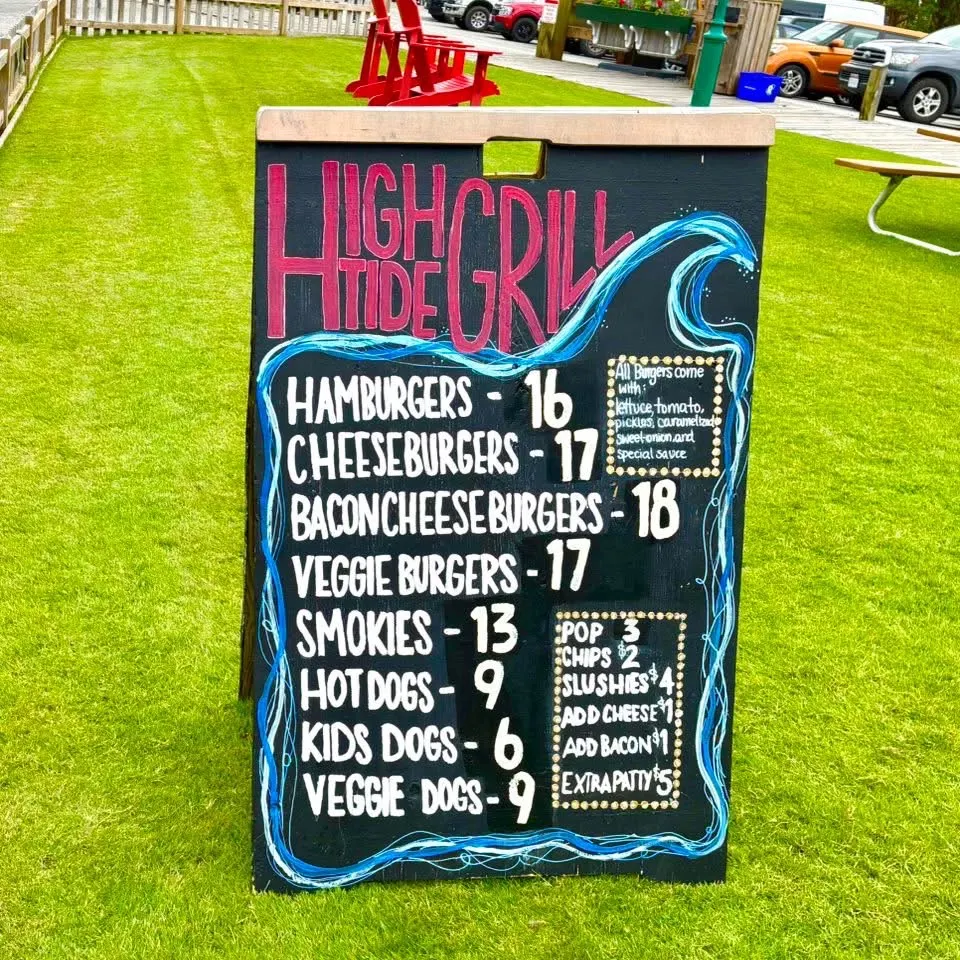 HIGH TIDE GRILL
HAMBURGERS - 16
CHEESEBURGERS - 17
BACONCHEESEBURGERS - 18
VEGGIE BURGERS - 17
SMOKIES - 13
HOT DOGS - 9
KIDS DOGS - 6
VEGGIE DOGS - 9
All Burgers come
with:
lettuce, tomato,
pickles, caramelized
sweet onion, and
special sauce
POP 3
CHIPS $2
SLUSHIES $4
ADD CHEESE $1
ADD BACON $1
EXTRA PATTY $5